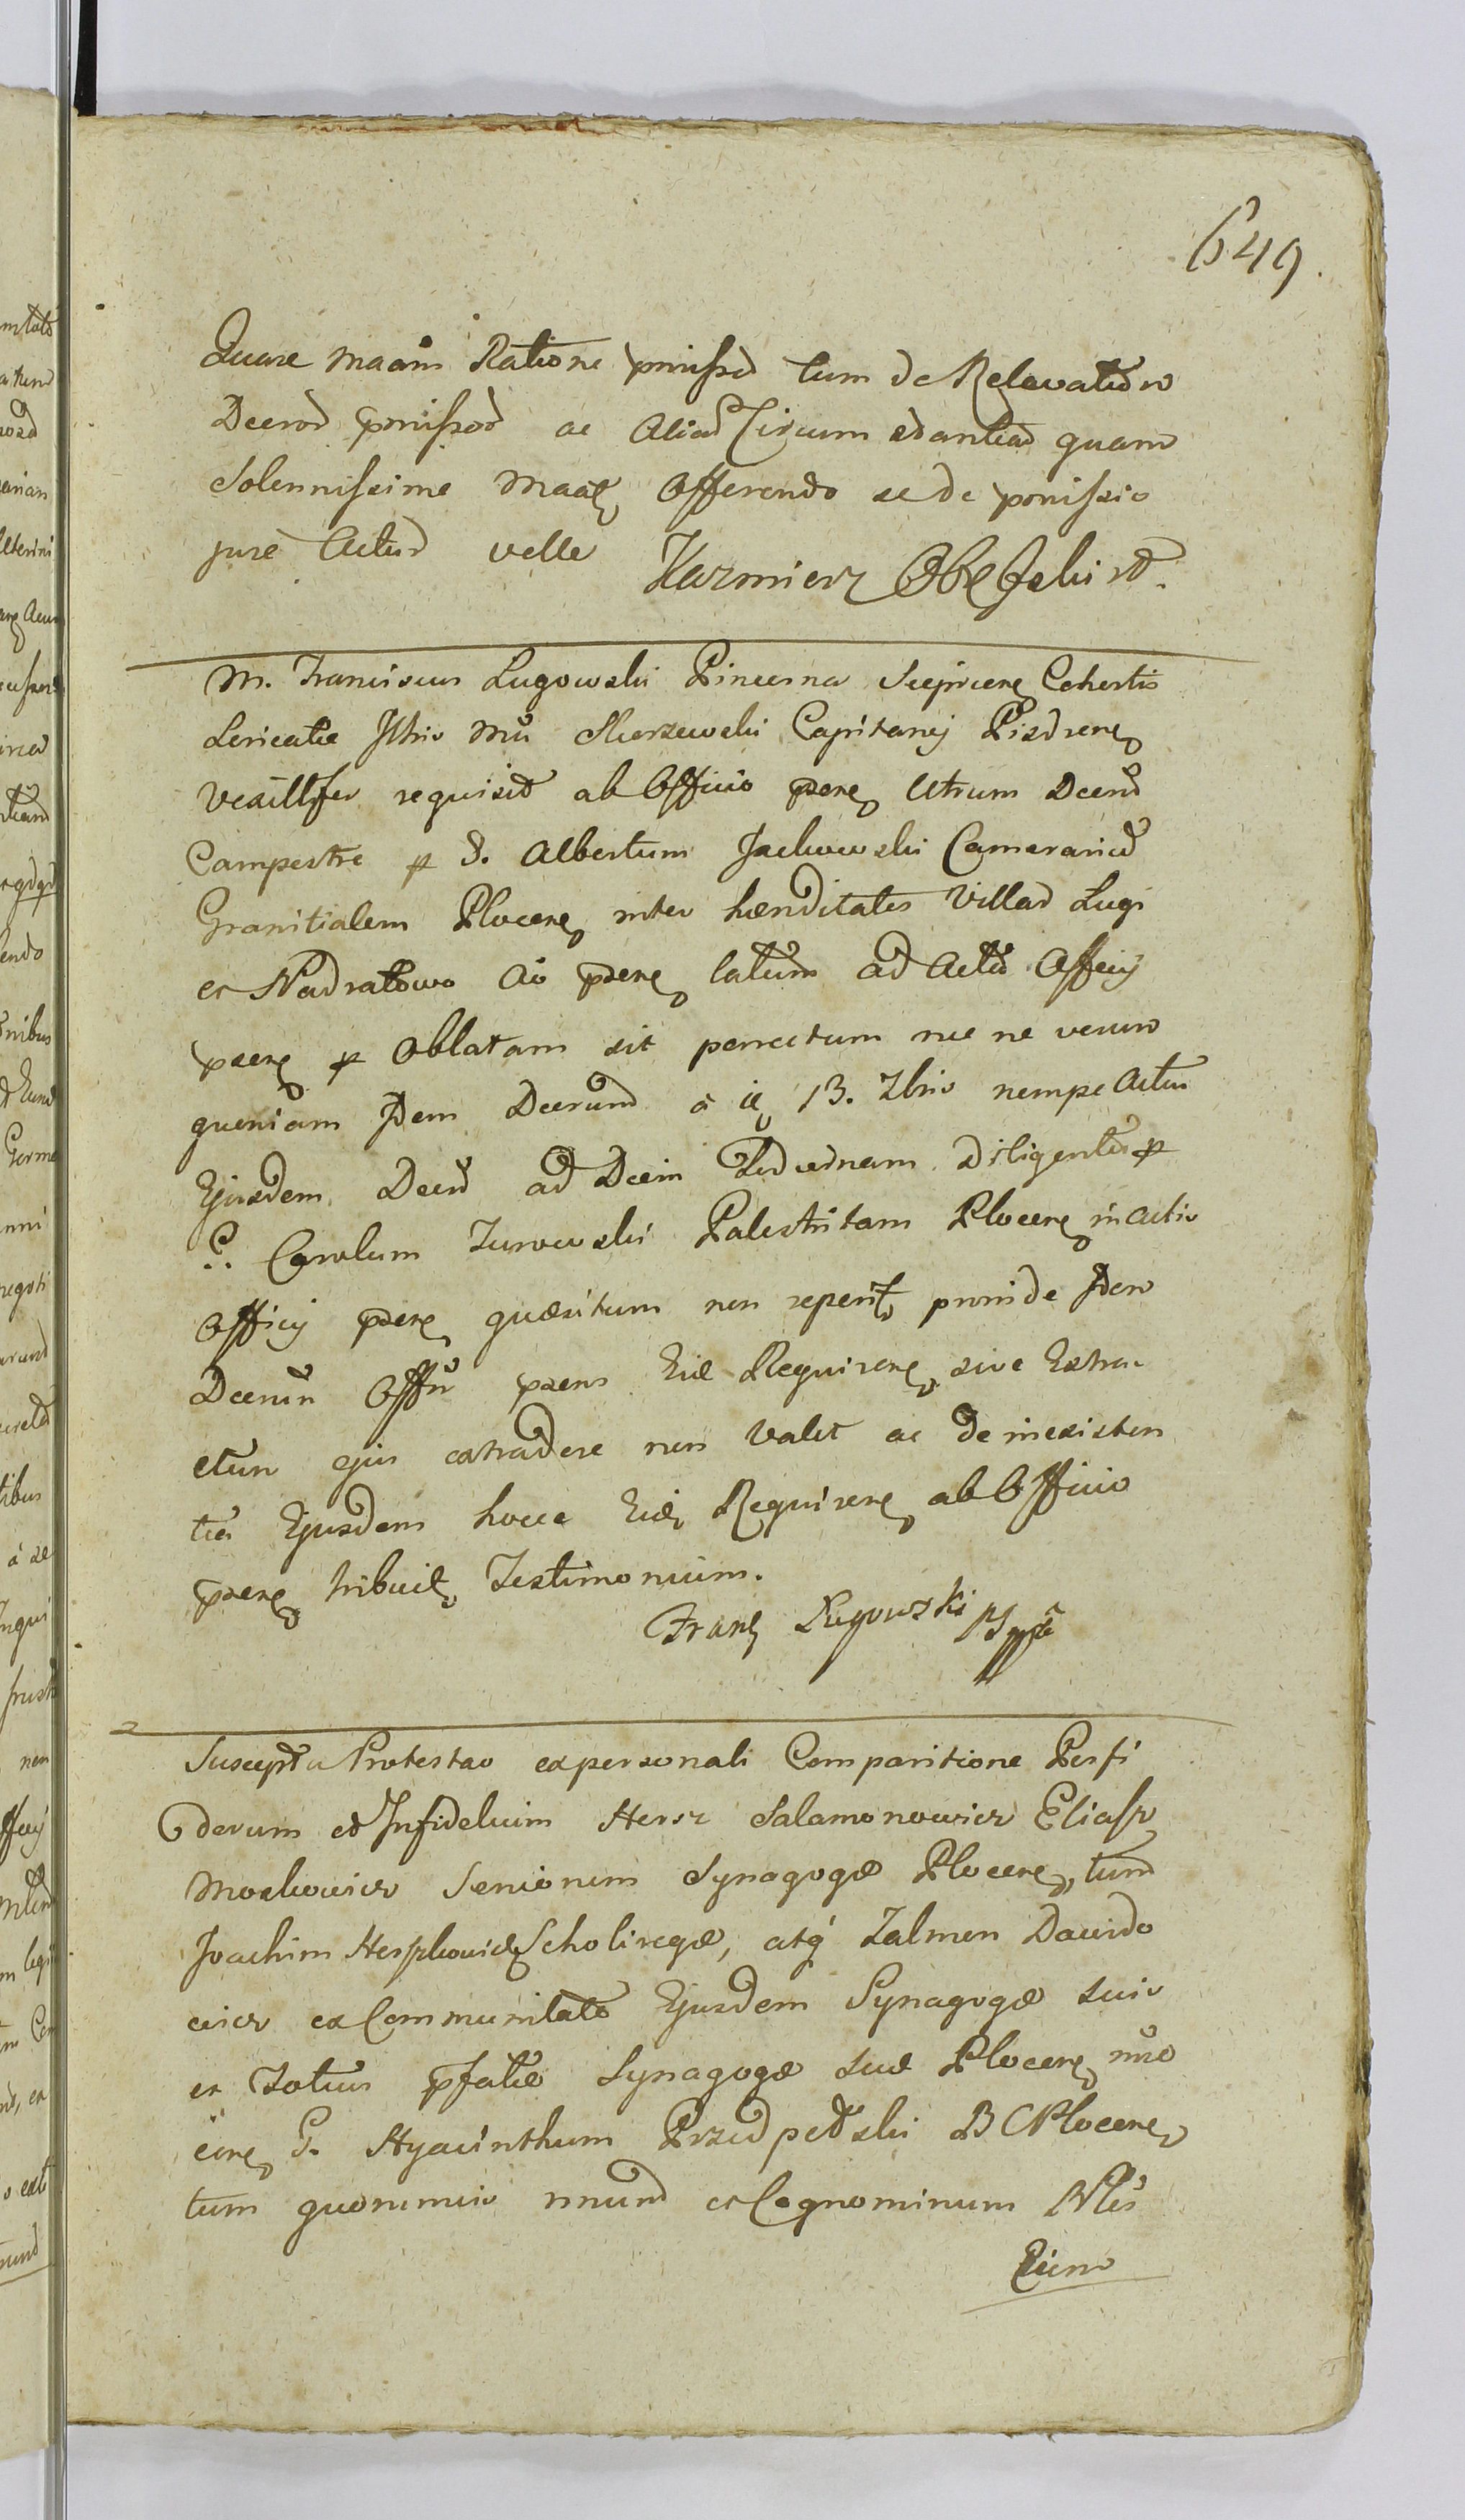 649.
Quare maām Ratione pmissed tum de Relevatiōn
Decrod pmissod ac Aliad Circum sdantiad quam
Solennissime maaſ Offerendo se de pmissis
jure Actud velle Kazmierz
M. Franciscus Lugowski Pincerna Cohortis
Loricatæ Illris Mci Skorzewski Capitanej Pisdren
Vexillifer requisit ab Officio psen utrum Decrm
Campestre p G. Albertum Jackowski Camerariū
Granitialem Plocen inter hæreditates Villas Lugi
et Nadratowo Aō psen latum ad Acta Officij
psen p Oblatam sit porrectum nec ne verum
quoniam Idem Decrum a 13. nempe Actu
Ejusdem Decr ad Diem Diligenter p
G. Carolum Turowski Palestritam Plocen in Actis
Officij psen quæsitum non reperit proinde Idem
Decrum Offm psens Eid Requiren sive Extra
ctum ejus extradere non Valet ac de inexisten
tia Ejusdem hocce Eid Requiren ab Officio
psen tribuit Testimonium.
Franc Lugowski
Suscepta Protestao ex personali Comparitione Perfi
dorum et Infidelium Hersz Salamonowicz Eliasz
Moskowicz Seniorum Synagogæ Plocen, tum
Joachim Herszkowicz Scholiregæ, atq Zalmen Dawido
wicz ex Communitate Ejusdem Synagogæ suis
et Totius pfatæ Synagogæ suæ Plocen nōe
cōn G. Hyacinthum Przedpełski B C Plocen
tum quorumvis nnum et Cognominum Nles
Cum